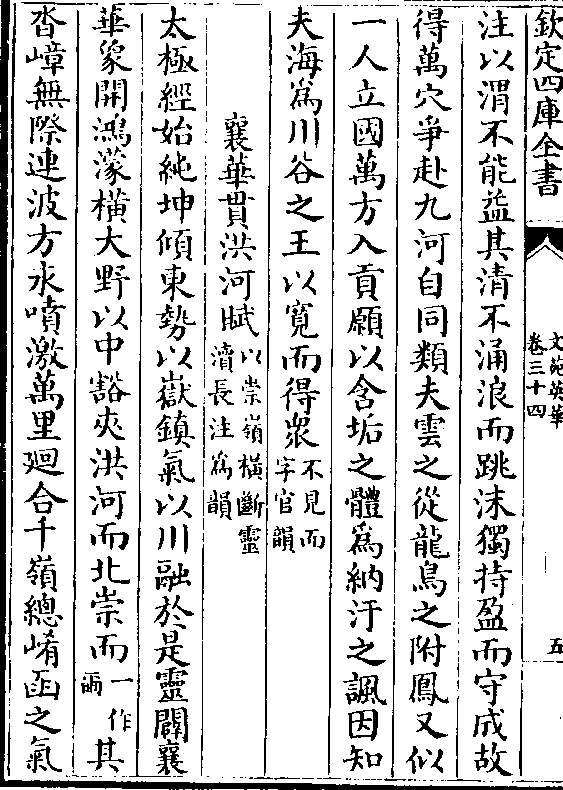 欽定四庫全書
文苑英華
卷三十四
五
注以渭不能益其清不涌浪而跳沫獨持盈而守成故
得萬穴爭赴九河自同類夫雲之從龍鳥之附鳳又似
一人立國萬方入貢願以含垢之體為納汙之諷因知
夫海為川谷之王以寬而得衆不見而字官韻
襄華貫洪河賦以崇嶺橫斷靈瀆長注為韻
太極經始純坤傾東勢以嶽鎮氣以川融於是靈闢襄
華象開鴻濛橫大野以中豁夾洪河而北崇而一作兩其
沓嶂無際連波方永噴激萬里廻合千嶺總崤函之氣